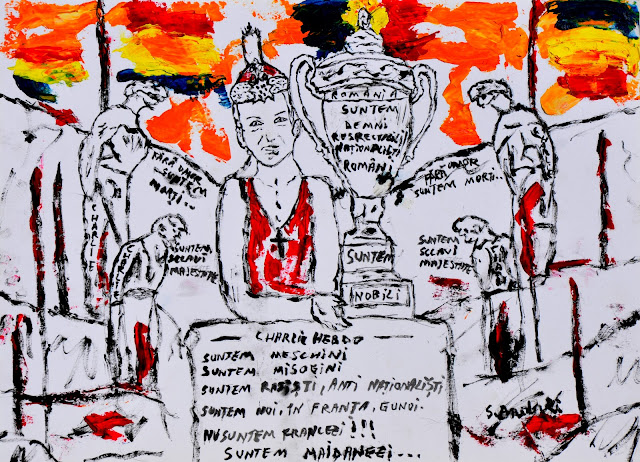 ROMÂNIA
SUNTEM
DEMNI
RESPECTABILI
NAȚIONALIȘTI
ROMÂNI
SUNTEM
NOBILI
FĂRĂ UMOR
SUNTEM
MORȚI..
FĂRĂ UMOR
SUNTEM MORȚI..
CHARLIE
SUNTEM
SCLAVI
MAJESTATE
SUNTEM
SCLAVI
MAJESTATE
CHARLIE HEBDO
SUNTEM MESCHINI
SUNTEM MISOGINI
SUNTEM RASIȘTI, ANTI NAȚIONALIȘTI
SUNTEM NOI, IN FRANȚA, GUNOI.
NU SUNTEM FRANCEZI!!!
SUNTEM MAIDANEZI...